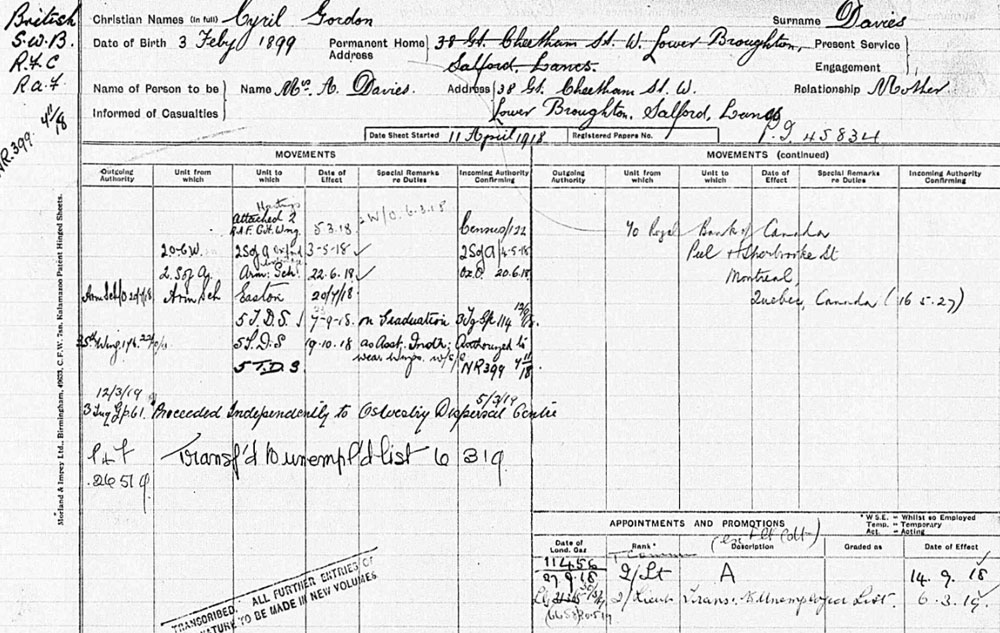 British
S.W.B.
R.F.C
R a. F
4/11/8
NR.399
Christian Names (in full) Cyril Gordon Surname Davies
Date of Birth 3 Feby 1899 Permanent Home Address 38 Gt. Cheetham St. W. Lower Broughton, Salford, Lancs. Present Service Engagement
Name of Person to be Informed of Casualties Name Mrs. A. Davies. Address 38 Gt. Cheetham St. W. Lower Broughton, Salford, Lancs Relationship Mother
Date Sheet Started 11 April 1918 Registered Papers No. P.I. 45834
MOVEMENTS MOVEMENTS (continued)
Outgoing Authority Unit from which Unit to which Date of Effect Special Remarks re Duties Incoming Authority Confirming Outgoing Authority Unit from which Unit to which Date of Effect Special Remarks re Duties Incoming Authority Confirming
Hastings
Attached 2 R.A.F. Cdt. Wng. 5.3.18 W/O. 6.3.18 Census/122
2 S of A 3-5-18 2 S of A 4-5-18
2. S of Ag. Arm. Sch. 22.6.18 20.6.18
Arm Sch/O 20/7/18 Arm Sch Easton 20/7/18
5 T.D.S. 7-9-18. on Graduation 3 Tg Gp 114
35th Wing 176 5 T.D.S 19.10.18 as Asst. Instr; Authorized to wear Wings
5 T.D.S NR399 4/11/18
12/3/19 5/3/19
3 Tng Gp. 61. Proceeded Independently to Oswestry Dispersal Centre
Transf'd to unempl'd list 6 3 19.
26 5 19
c/o Royal Bank of Canada
Peel & Sherbrooke St
Montreal,
Quebec, Canada (16.5.27)
Morland & Impey Ltd., Birmingham, 49633, C.F.W. 7an. Kalamazoo Patent Hinged Sheets.
TRANSCRIBED. ALL FURTHER ENTRIES OF
NATURE TO BE MADE IN NEW VOLUMES
APPOINTMENTS AND PROMOTIONS
* W.S.E. = Whilst so Employed
Temp. = Temporary
Act. = Acting
Date of Lond. Gaz Rank* Description Graded as Date of Effect
11456
27.9.18 2/Lt A 14. 9. 18
2/Lieut Trans. to Unemployed List. 6.3.19.